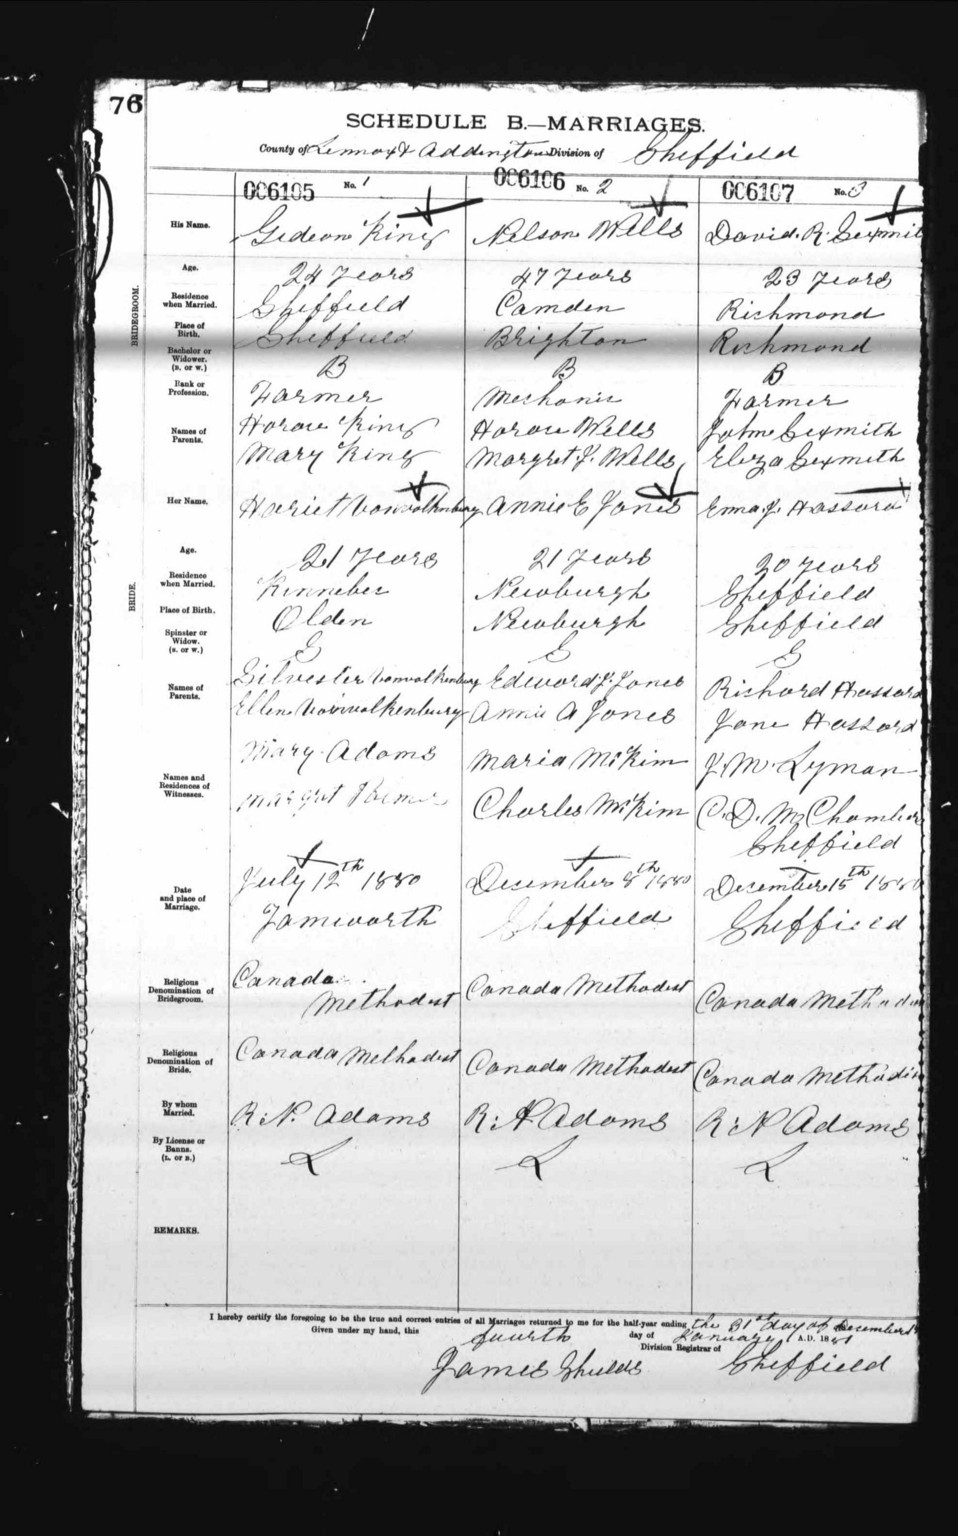 76
SCHEDULE B.—MARRIAGES.
County of Lennox & Addington Division of Sheffield
006105 No. 1
006106 No. 2
006107 No. 3
BRIDEGROOM.
His Name. Gideon King Nelson Wells David. R. Sexmit
Age. 24 years 47 years 23 years
Residence when Married. Sheffield Camden Richmond
Place of Birth. Sheffield Brighton Richmond
Bachelor or Widower. (B. or W.) B B B
Rank or Profession. Farmer Mechanic Farmer
Names of Parents. Horace King Horace Wells John Sexmith
Mary King Margret J. Wells Eliza Sexmith
BRIDE.
Her Name. Hariet Vanvalkenbury Annie E Jones Emma J. Hassard
Age. 21 years 21 years 20 years
Residence when Married. Kennebec Newburgh Sheffield
Place of Birth. Olden Newburgh Sheffield
Spinster or Widow. (S. or W.) S S S
Names of Parents. Silvester Vanvalkenbury Edward J. Jones Richard Hassard
Ellen Vanvalkenbury Annie A Jones Jane Hassard
Names and Residences of Witnesses. Mary Adams Maria McKim J. M. Lyman
Margret Charles McKim C. D. McChamber
Sheffield
Date and place of Marriage. July 12th 1880 December 8th 1880 December 15th 1880
Tamworth Sheffield Sheffield
Religious Denomination of Bridegroom. Canada Methodist Canada Methodist Canada Methodis
Religious Denomination of Bride. Canada Methodist Canada Methodist Canada Methodis
By whom Married. R. N. Adams R. N. Adams R. N. Adams
By License or Banns. (L. or B.) L L L
REMARKS.
I hereby certify the foregoing to be the true and correct entries of all Marriages returned to me for the half-year ending the 31st day of December
Given under my hand, this fourth day of January A.D. 1881
James Shields Division Registrar of Sheffield